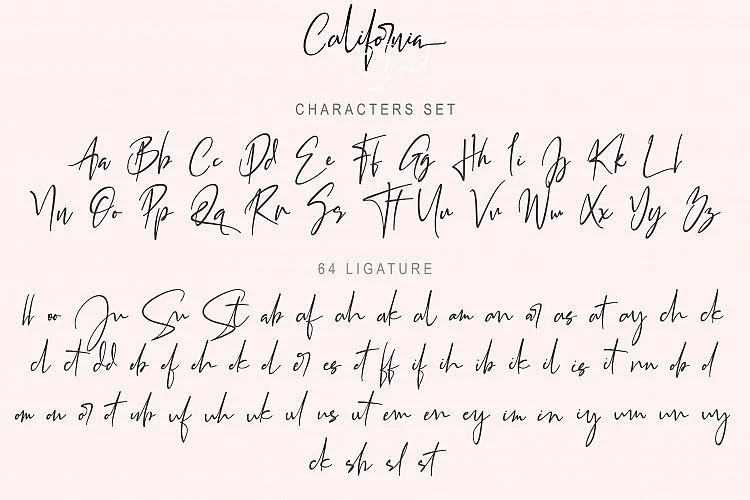 California
Street
CHARACTERS SET
Aa Bb Cc Dd Ee Ff Gg Hh Ii Jj Kk Ll
Nn Oo Pp Qq Rr Ss Tt Uu Vv Ww Xx Yy Zz
64 LIGATURE
ll oo Ju Su St ab af ah ak al am an ar as at ay ch ck
cl ct dd eb ef eh ek el er es et ff if ih ib ik il is it nn ob ol
om on or ot ub uf uh uk ul us ut em en ey im in iy um un uy
ck sh sl st